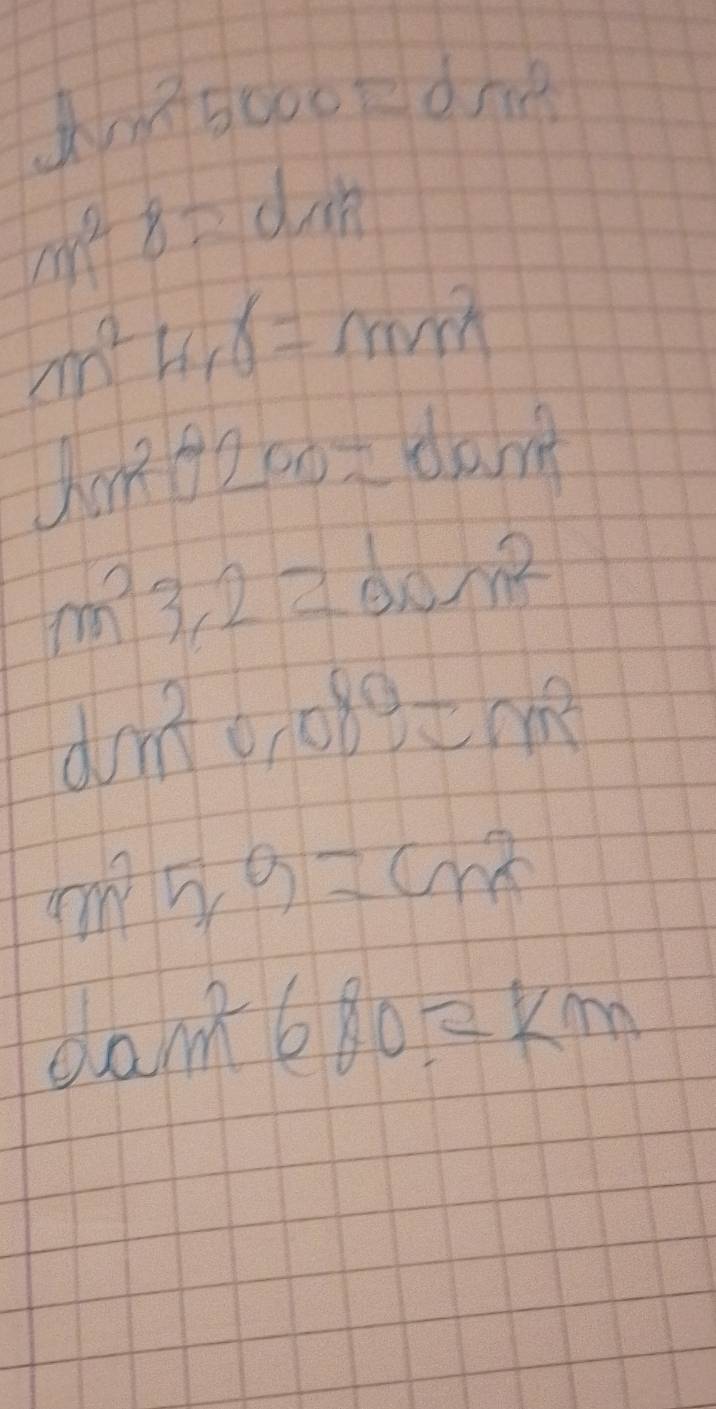 hm² 5000 = dm²
m² 8 = dm
m² 4,8 = mm²
hm² 9200 = dam²
m² 3,2 = dam²
dm² 0,089 = m²
m² 5,9 = cm²
dam² 680 = km